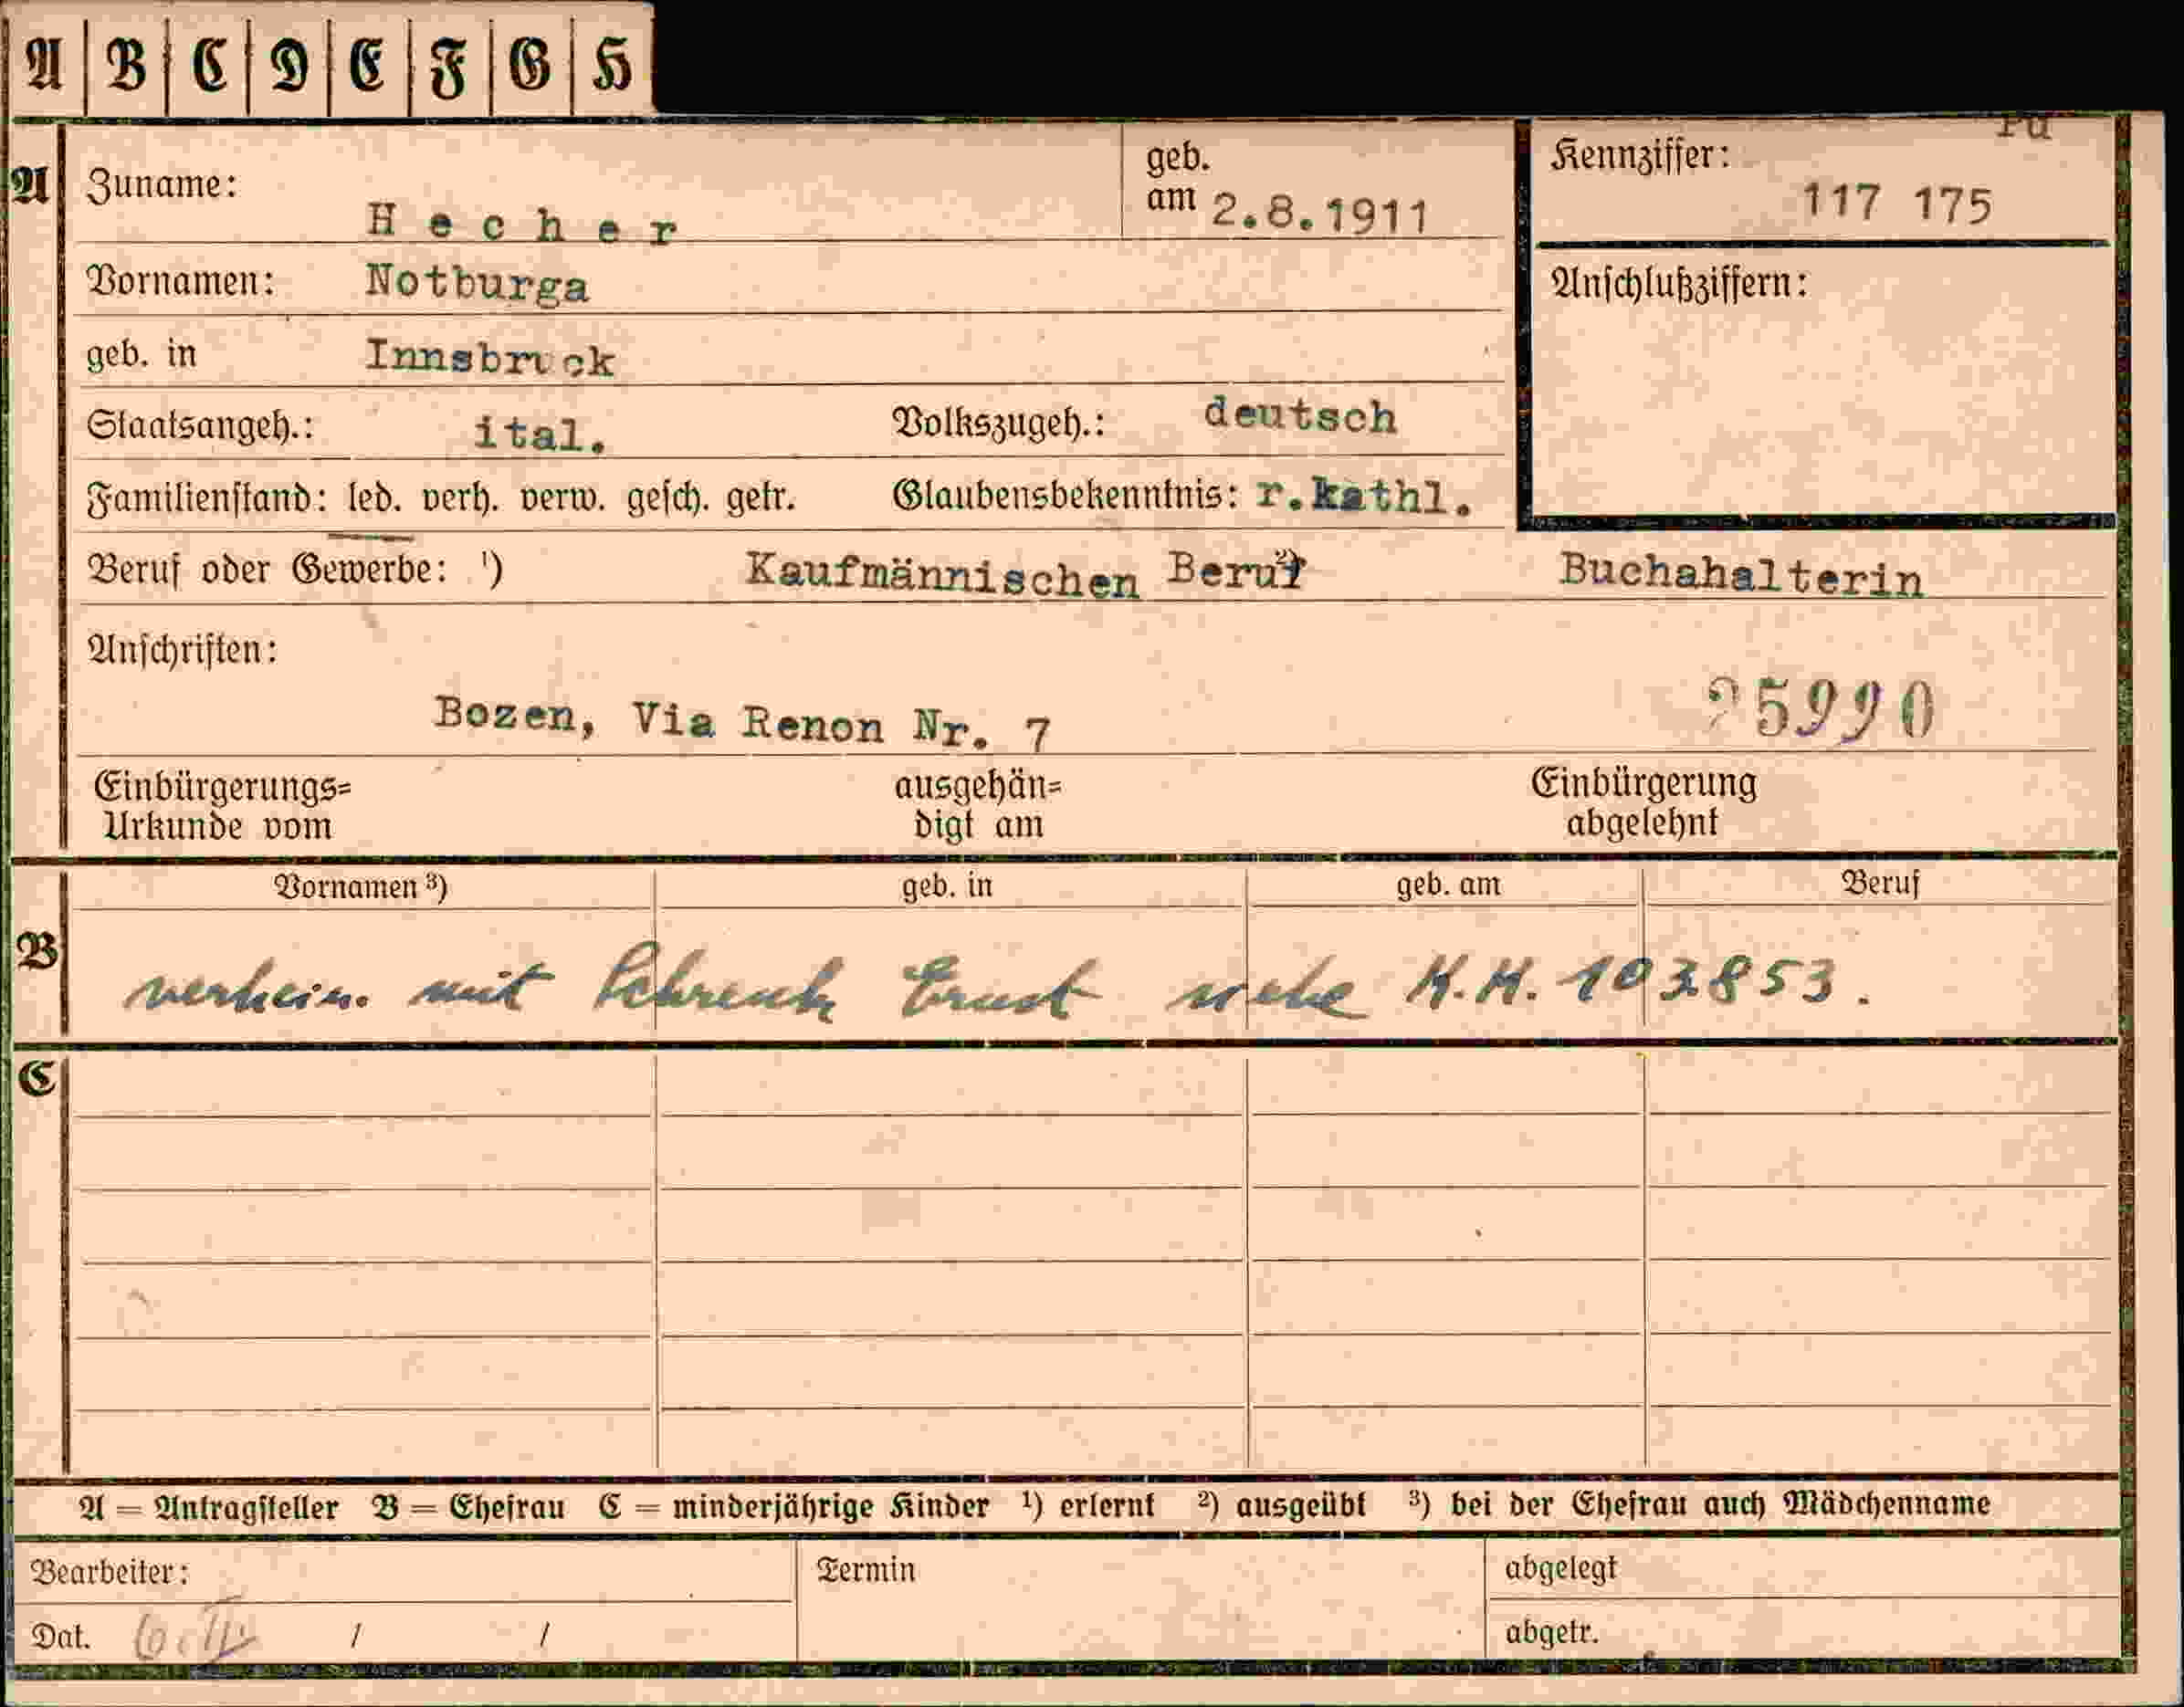 A B C D E F G H
Pu
A Zuname: Hecher geb. am 2.8.1911 Kennziffer: 117 175
Vornamen: Notburga Anschlußziffern:
geb. in Innsbruck
Staatsangeh.: ital. Volkszugeh.: deutsch
Familienstand: led. verh. verw. gesch. getr. Glaubensbekenntnis: r.kathl.
Beruf oder Gewerbe: ¹) Kaufmännischen Beruf ²) Buchahalterin
Anschriften:
Bozen, Via Renon Nr. 7 25990
Einbürgerungs= ausgehän= Einbürgerung
Urkunde vom digt am abgelehnt
Vornamen ³) geb. in geb. am Beruf
B verheir. mit Schrenk Ernst siehe K.K. 103853.
C
A = Antragsteller B = Ehefrau C = minderjährige Kinder ¹) erlernt ²) ausgeübt ³) bei der Ehefrau auch Mädchenname
Bearbeiter: Termin abgelegt
Dat. / / abgetr.